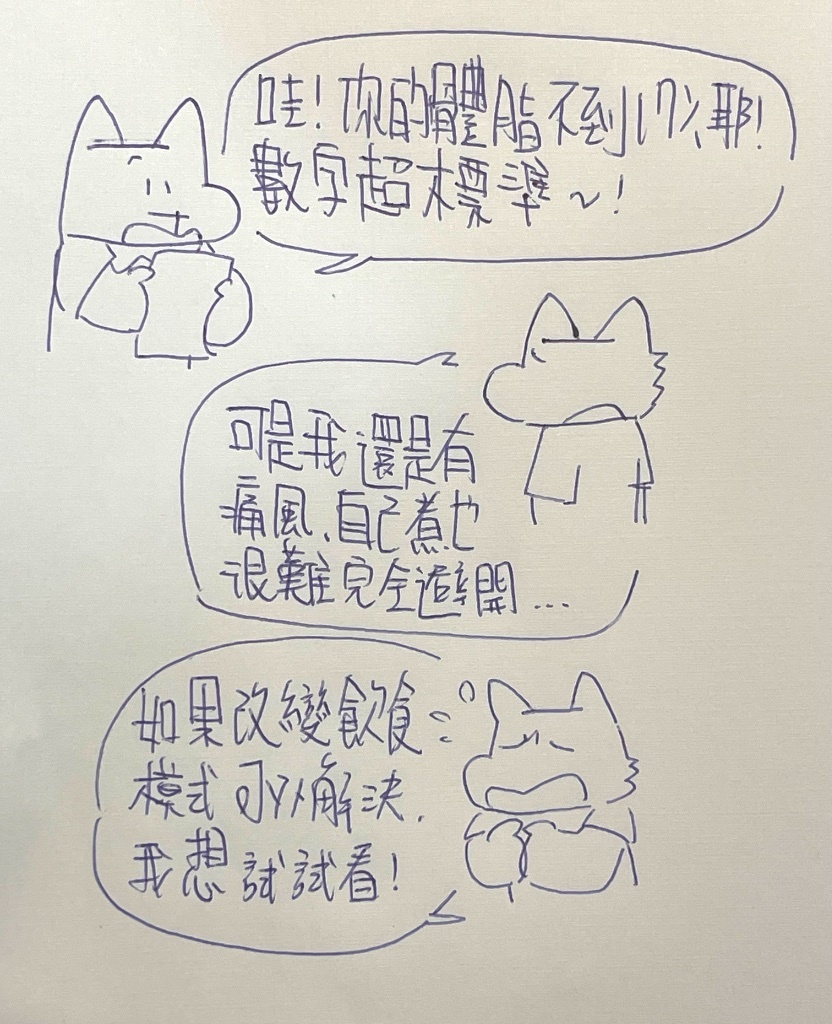 哇!你的體脂不到17%耶!
數字超標準~!
可是我還是有
痛風、自己煮也
很難完全避開...
如果改變飲食
模式可以解決,
我想試試看!